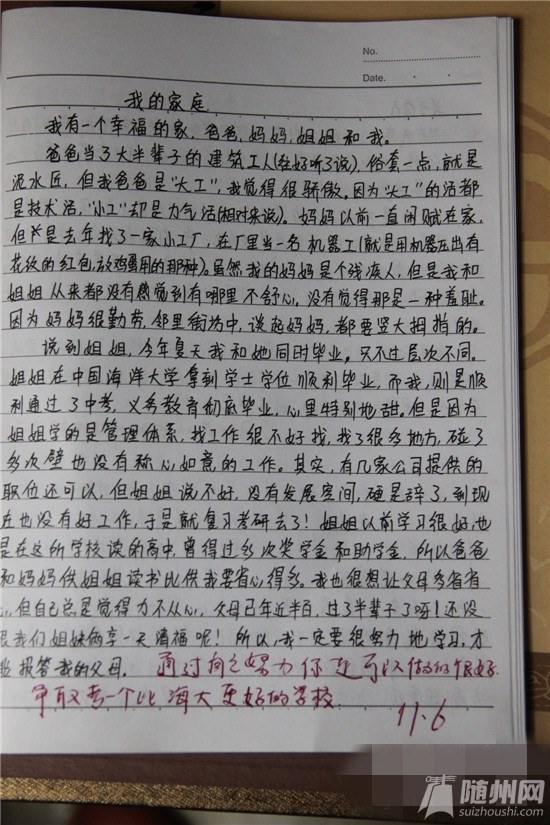 No.
Date.
我的家庭
我有一个幸福的家，爸爸，妈妈，姐姐和我。
爸爸当了大半辈子的建筑工人(在好听了说)，俗套一点，就是
泥水匠，但我爸爸是"大工"，我觉得很骄傲。因为"大工"的活都
是技术活，"小工"却是力气活(相对来说)。妈妈以前一直闲赋在家，
但是去年找了一家小工厂，在厂里当一名机器工(就是用机器压出有
花纹的红包，放鸡蛋用的那种)。虽然我的妈妈是个残疾人，但是我和
姐姐从来都没有感觉到有哪里不舒心，没有觉得那是一种羞耻。
因为妈妈很勤劳，邻里街坊中，谈起妈妈，都要竖大拇指的。
说到姐姐，今年夏天我和她同时毕业。只不过层次不同。
姐姐在中国海洋大学拿到学士学位顺利毕业，而我，则是顺
利通过了中考，义务教育彻底毕业，心里特别地甜。但是因为
姐姐学的是管理体系，找工作很不好找，找了很多地方，碰了
多次壁也没有称心如意的工作。其实，有几家公司提供的
职位还可以，但姐姐说不好，没有发展空间，硬是辞了，到现
在也没有好工作，于是就复习考研去了！姐姐以前学习很好，也
是在这所学校读的高中，曾得过多次奖学金和助学金，所以爸爸
和妈妈供姐姐读书比供我要省心得多。我也很想让父母多省省
心，但自己总是觉得力不从心，父母已年近半百，过了半辈子了呀！还没
跟我们姐妹俩享一天清福呢！所以，我一定要很努力地学习，才
能报答我的父母。 通过自己努力你是可以做的很好.
争取考一个比海大更好的学校.
11.6
随州网
suizhoushi.com